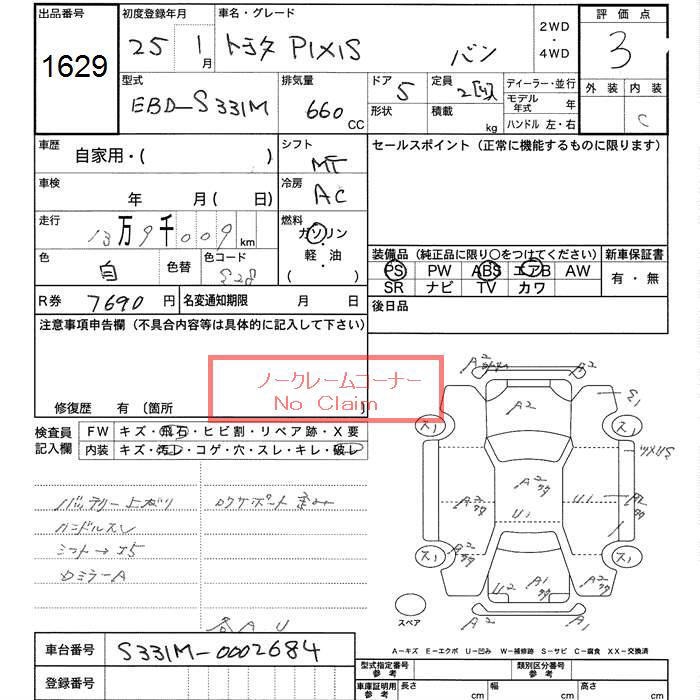 出品番号 初度登録年月 車名・グレード 2WD・4WD 評価点
1629 25 1月 トヨタ PIXIS バン 3
型式 排気量 ドア 定員 ディーラー・並行 外装 内装
EBD-S331M 660 CC 5 モデル年式 年 C
形状 積載 kg ハンドル 左・右
車歴 自家用・( ) シフト MT セールスポイント(正常に機能するものに限ります)
車検 年 月( 日) 冷房 AC
走行 13万9千009 km 燃料 ガソリン・軽油 ( )
装備品(純正品に限り○をつけてください) 新車保証書
色 白 色替 色コード S28 PS PW ABS エアB AW 有・無
SR ナビ TV カワ
R券 7690円 名変通知期限 月 日 後日品
注意事項申告欄(不具合内容等は具体的に記入して下さい)
ノークレームコーナー
No Claim
修復歴 有 〔箇所
検査員記入欄 FW キズ・飛石・ヒビ割・リペア跡・X要
内装 キズ・汚レ・コゲ・穴・スレ・キレ・破レ
バッテリー上がり ロケサポート歪み
ハンドルスレ
シフト→
ロミラーA
各AU
A2 A2 A2
S1
ス1 ス1
A2 A2
U1 U1
ス1 ス1
A2 U2 A1 A2
A1 A1
スペア
A-キズ E-エクボ U-凹み W-補修跡 S-サビ C-腐食 XX-交換済
車台番号 S331M-0002684 型式指定番号参考 類別区分番号参考
登録番号 車庫証明用参考 長さ cm 幅 cm 高さ cm